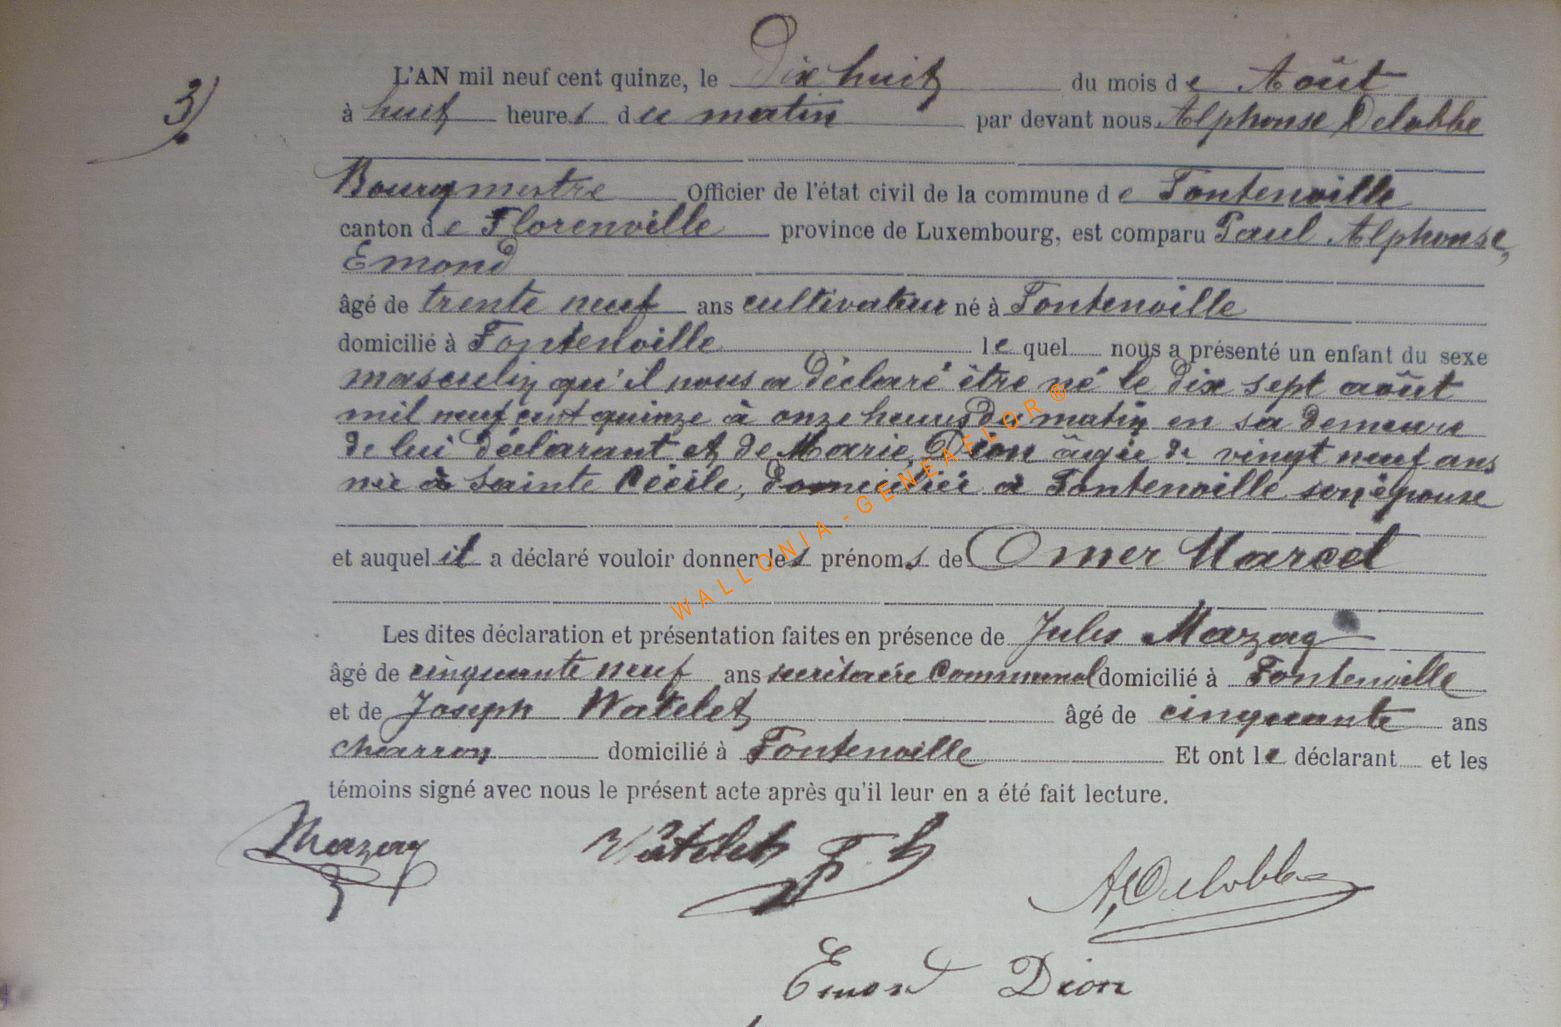 L'AN mil neuf cent quinze, le Dix huit du mois de Août
3)
à huit heures du matin par devant nous Alphonse Delobbe
Bourgmestre Officier de l'état civil de la commune de Fontenoille
canton de Florenville province de Luxembourg, est comparu Paul Alphonse,
Emond
âgé de trente neuf ans cultivateur né à Fontenoille
domicilié à Fontenoille lequel nous a présenté un enfant du sexe
masculin qu'il nous a déclaré être né le dix sept août
mil neuf cent quinze à onze heures du matin en sa demeure
de lui déclarant et de Marie Dion âgée de vingt neuf ans
née à Sainte Cécile, domiciliée à Fontenoille son épouse
et auquel il a déclaré vouloir donner les prénoms de Omer Marcel
Les dites déclaration et présentation faites en présence de Jules Mazay
âgé de cinquante neuf ans secrétaire Communal domicilié à Fontenoille
et de Joseph Watelet âgé de cinquante ans
charron domicilié à Fontenoille Et ont le déclarant et les
témoins signé avec nous le présent acte après qu'il leur en a été fait lecture.
Mazay Watelet A. Delobbe
Emond Dion
WALLONIA-GENEAFLOR®